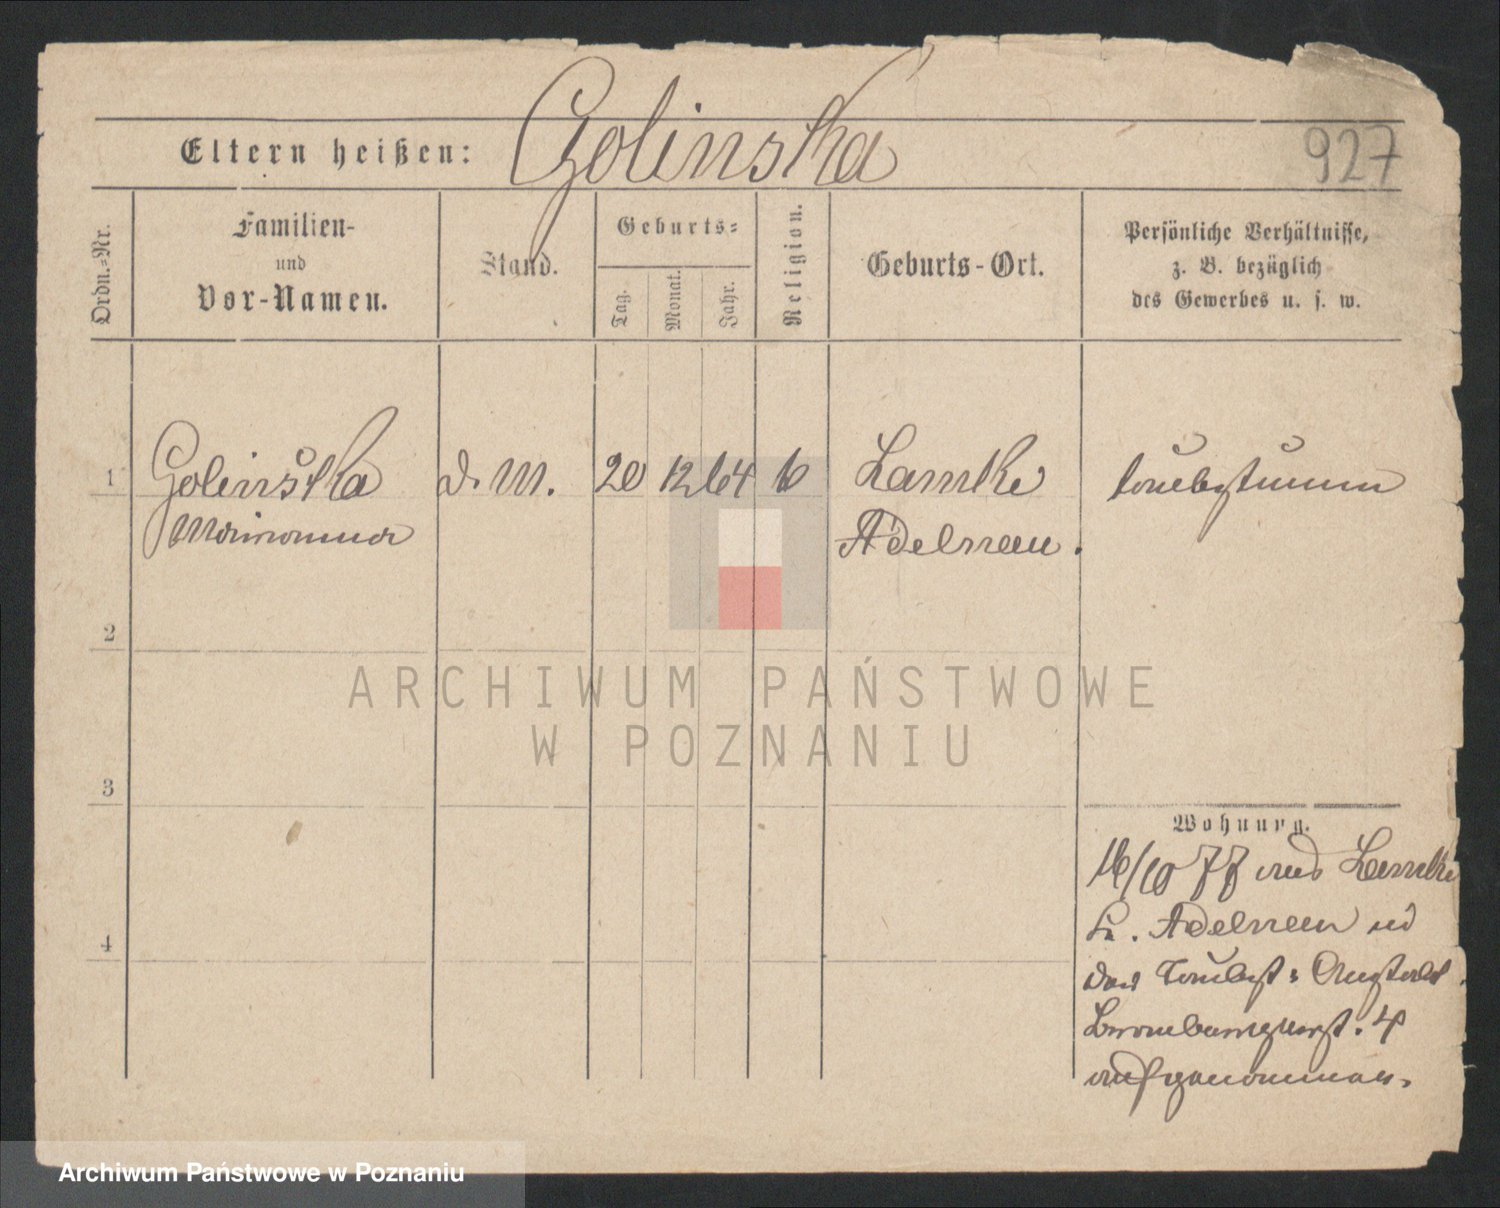 Eltern heißen: Golinska
927
Ordn.-Nr.
Familien-
und
Vor-Namen.
Stand.
Geburts-
Tag.
Monat.
Jahr.
Religion.
Geburts-Ort.
Persönliche Verhältnisse,
z. B. bezüglich
des Gewerbes u. s. w.
1 Golinska d. M. 20 12 64 Lamke taubstumm
Marianna Adelnau.
2
ARCHIWUM PAŃSTWOWE
W POZNANIU
3
Wohnung.
16/10 77 aus Lamke
4
Kr. Adelnau in
der Taubst: Anstalt
Brombergerst. 4
aufgenommen.
Archiwum Państwowe w Poznaniu